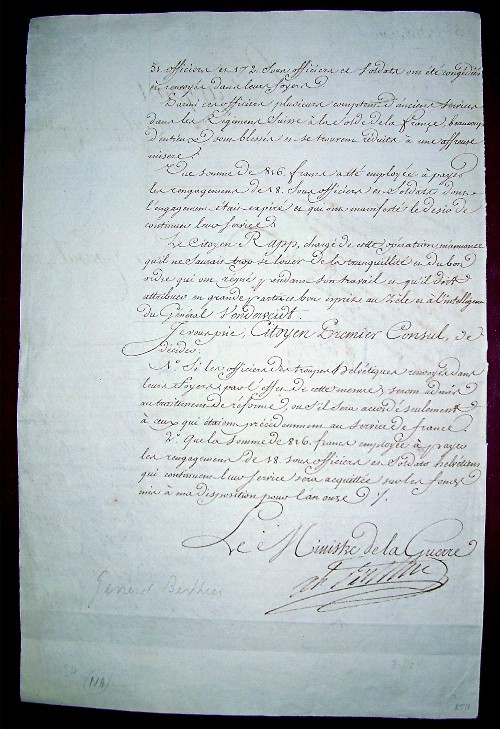 31 officiers et 172 Sous officiers et Soldats ont été congédiés
et renvoyés dans leurs foyers.
Parmi ces officiers plusieurs comptent d'anciens services
dans les Régimens Suisse à la Solde de la france, beaucoup
d'entre Eux sont blessés et se trouvent réduits à une affreuse
misère.
Une somme de 816. francs a été employée à payer
les rengagemens de 18. Sous officiers et Soldats dont
l'engagement était expiré et qui ont manifesté le désir de
continuer leur Service.
Le Citoyen Rapp, chargé de cette opération, m'annonce
qu'il ne saurait trop se louer de la tranquillité et du bon
ordre qui ont régné pendant son travail et qu'il doit
attribuer en grande partie ce bon esprit au Zèle et à l'intelligence
du Général Vonderveidt.
Je vous prie, Citoyen Premier Consul, de
décider:
1º. Si les officiers des troupes helvétiques renvoyés dans
leurs foyers par l'effet de cette mesure, seront admis
au traitement de réforme ou s'il sera accordé seulement
à ceux qui étaient précédemment au service de france
2º. Que la Somme de 816. francs employée à payer
les rengagemens de 18 sous officiers et Soldats helvétiens
qui continuent leur Service sera acquittée sur les fonds
mis à ma disposition pour l'an onze ./.
Le Ministre de la Guerre
General Berthier
(NA)